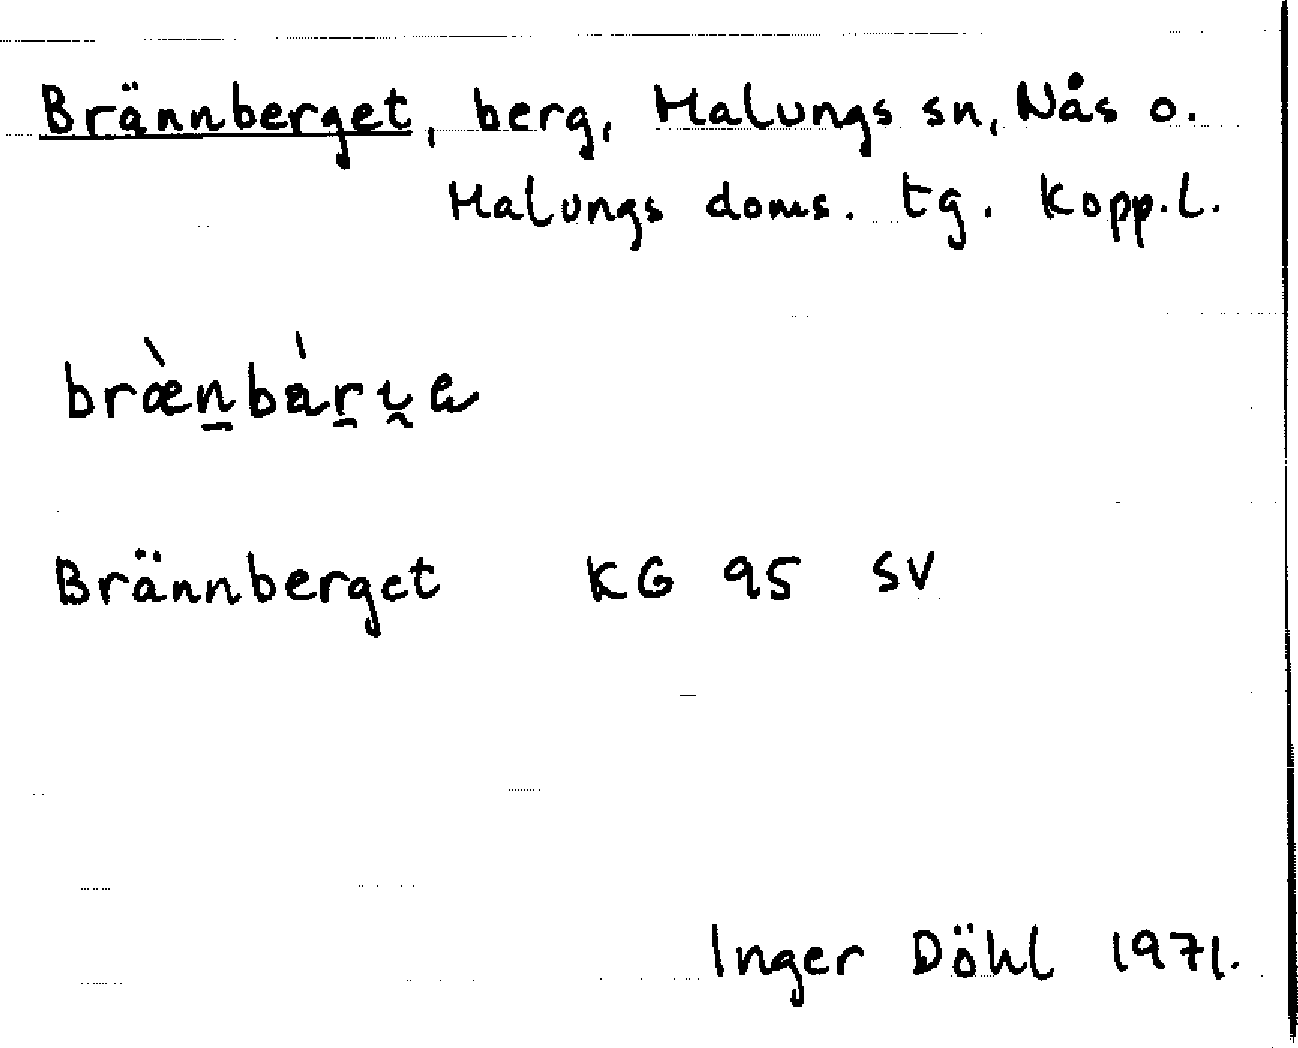 Brännberget, berg, Malungs sn, Nås o.
Malungs doms. tg. Kopp.l.
bræ̀n̠bàr̠i̯a
Brännberget KG 95 SV
Inger Döhl 1971.